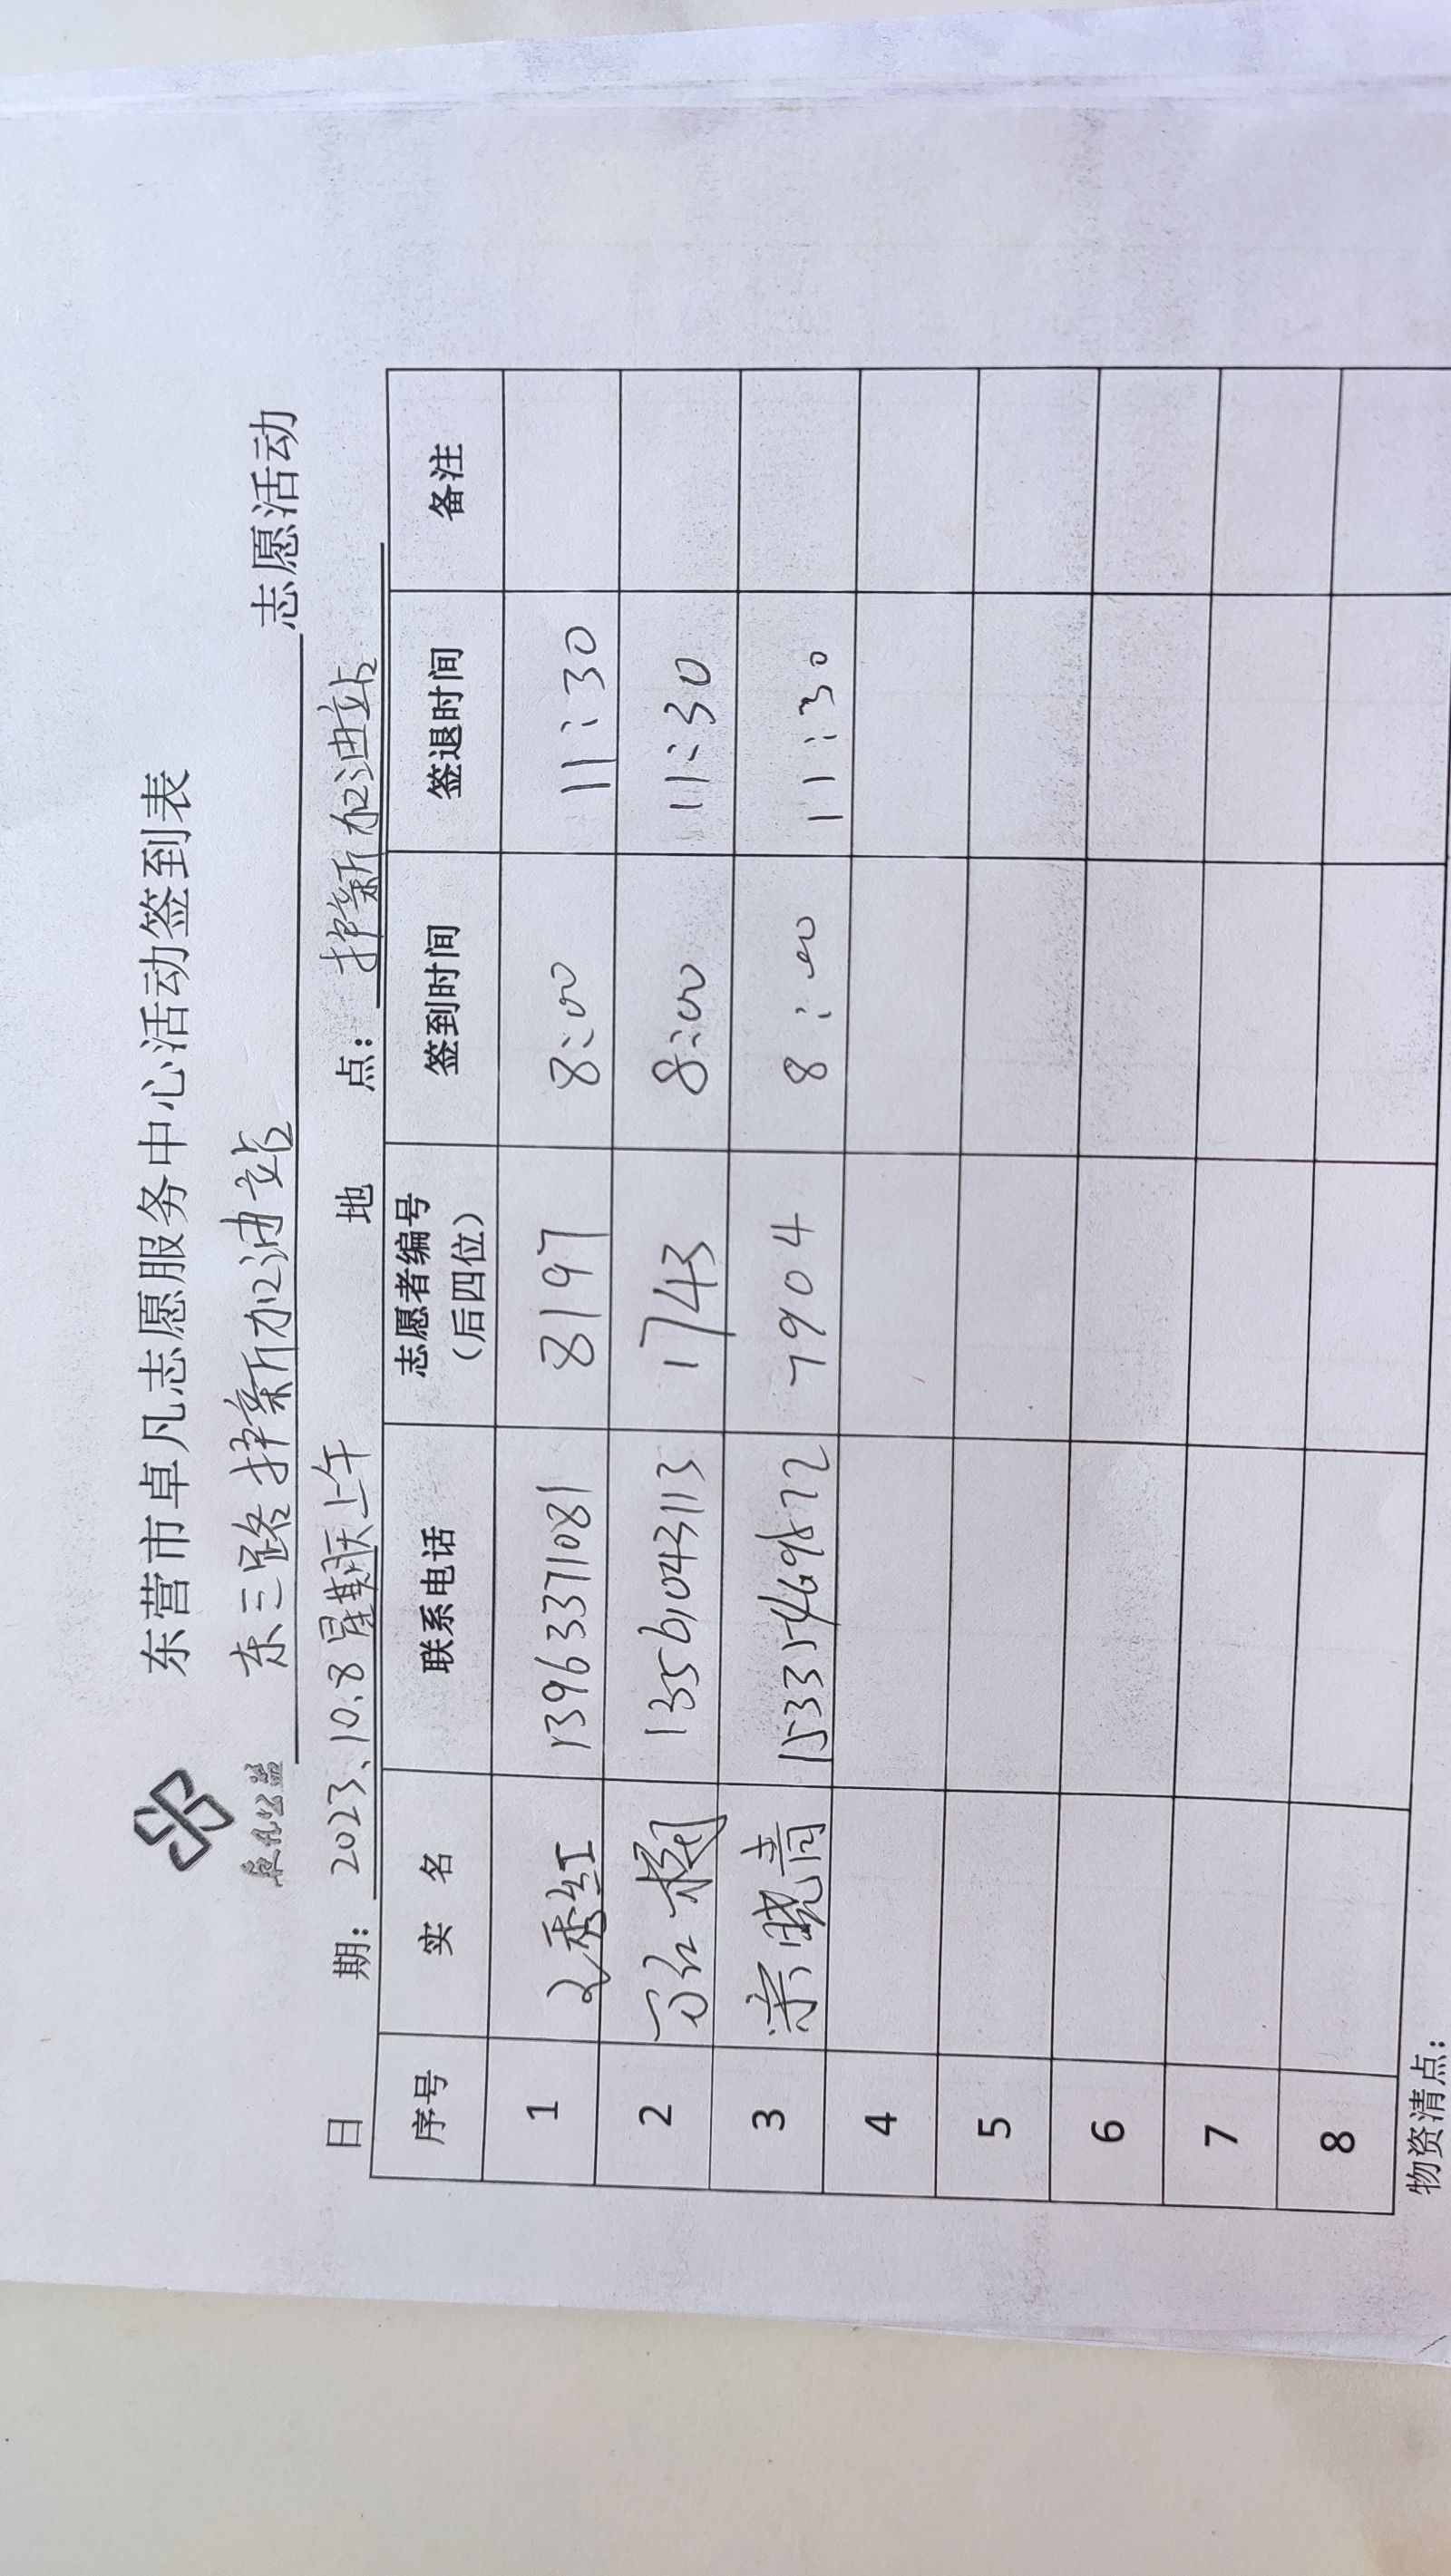 东营市卓凡志愿服务中心活动签到表
卓凡公益
东三路护新加油站 志愿活动
日 期: 2023、10.8星期天上午 地 点: 护新加油站
序号 实 名 联系电话 志愿者编号(后四位) 签到时间 签退时间 备注
1 秀红 13963371081 8197 8:00 11:30
2 13561043113 1743 8:00 11:30
3 宋晓青 7904 8:00 11:30
4
5
6
7
8
物资清点: